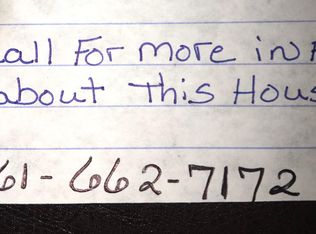 all For more in
about This Hous
61-662-7172